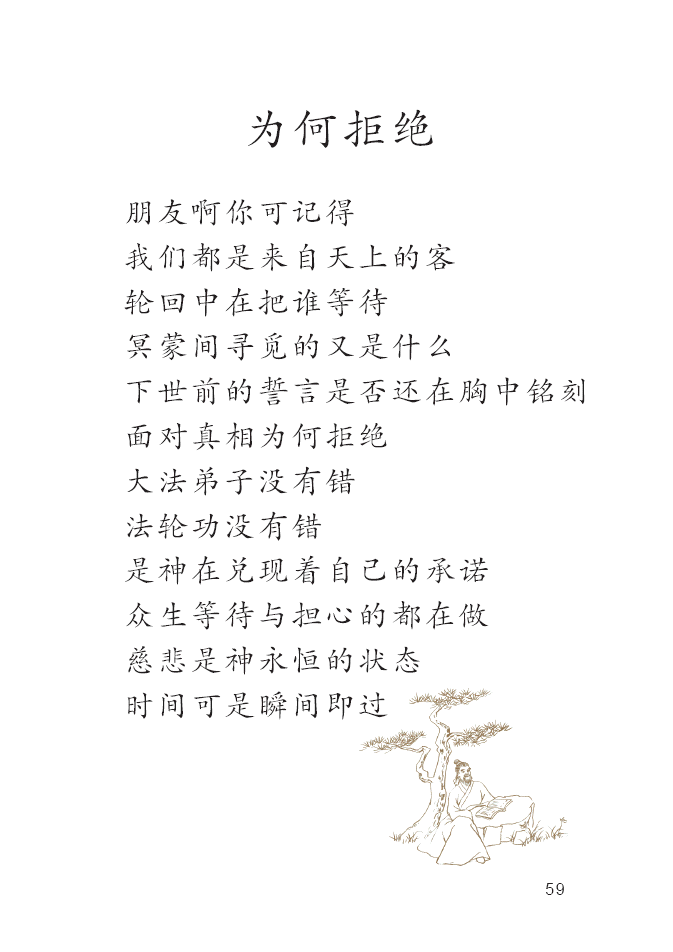 为何拒绝
朋友啊你可记得
我们都是来自天上的客
轮回中在把谁等待
冥蒙间寻觅的又是什么
下世前的誓言是否还在胸中铭刻
面对真相为何拒绝
大法弟子没有错
法轮功没有错
是神在兑现着自己的承诺
众生等待与担心的都在做
慈悲是神永恒的状态
时间可是瞬间即过
59